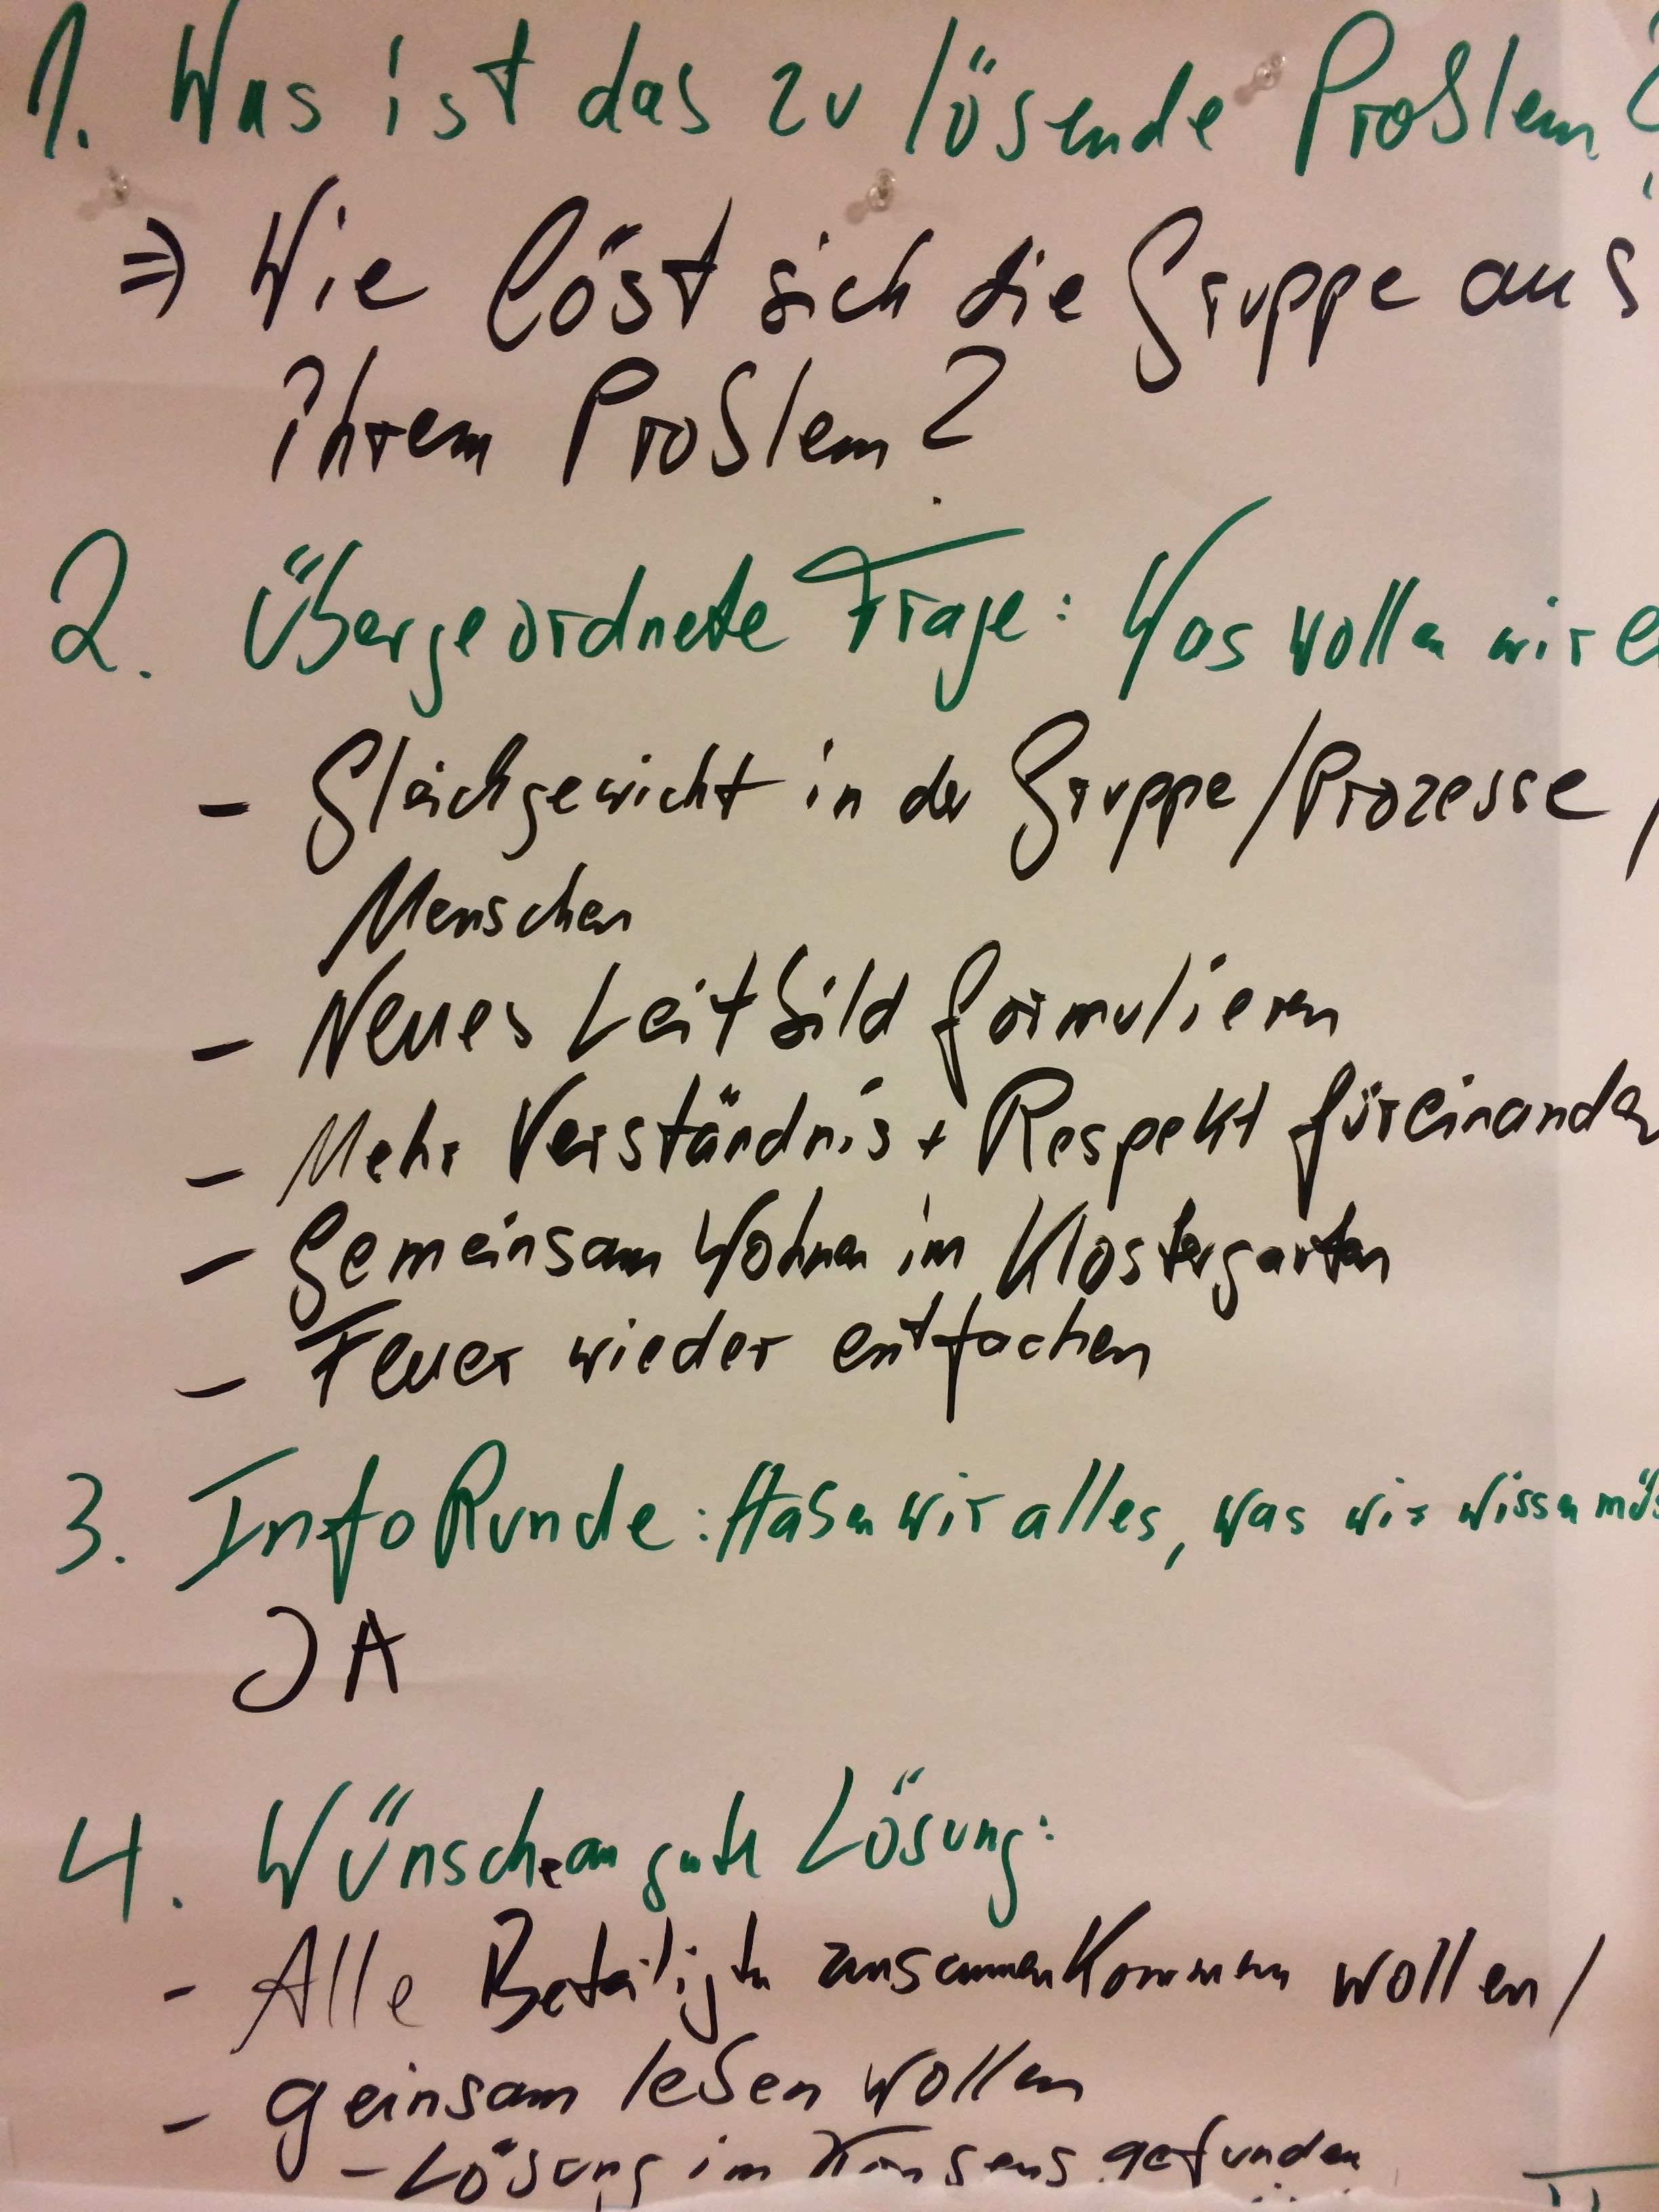 1. Was ist das zu lösende Problem?
⇒ Wie löst sich die Gruppe aus
ihrem Problem?
2. Übergeordnete Frage: Was wollen wir e
- Gleichgewicht in der Gruppe/Prozesse/
Menschen
- Neues Leitbild formulieren
- Mehr Verständnis + Respekt füreinander
- Gemeinsam Wohnen im Klostergarten
- Feuer wieder entfachen
3. Info Runde: Haben wir alles, was wir wissen müs
JA
4. Wünsche an gute Lösung:
- Alle Beteiligten zusammenkommen wollen/
- geinsam leben wollen
- Lösung im Konsens gefunden